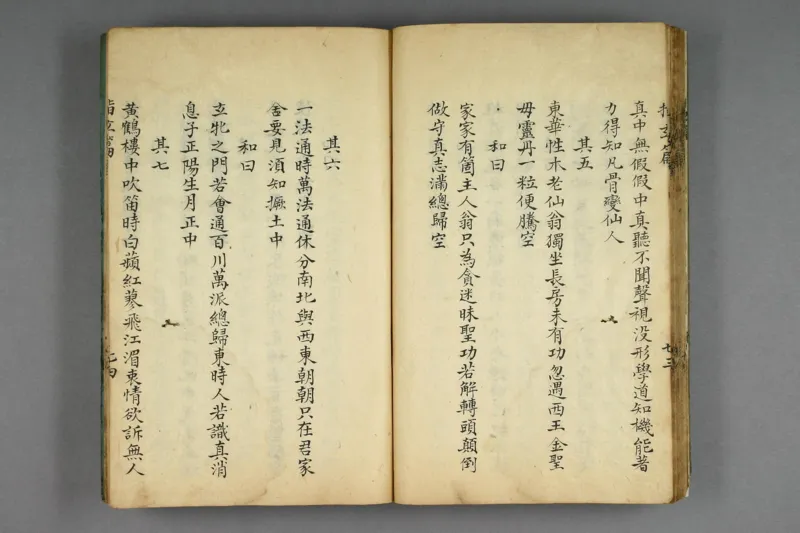 真中無假假中真聽不聞聲視没形學道知機能著
力得知凡骨變仙人
其五
東華性木老仙翁獨坐長房未有功忽遇西王金聖
毋靈丹一粒便騰空
和曰
家家有箇王人翁只為貪迷昧聖功若解轉頭顛倒
做守真志滿總歸空
七三
其六
一法通時萬法通休分南北與西東朝朝只在君家
舍要見須知撅土中
和曰
玄牝之門若會通百川萬派總歸東時人若識真消
息子正陽生月正中
其七
黄鶴樓中吹笛時白蘋紅蓼飛江湄衷情欲訴無人
指玄篇